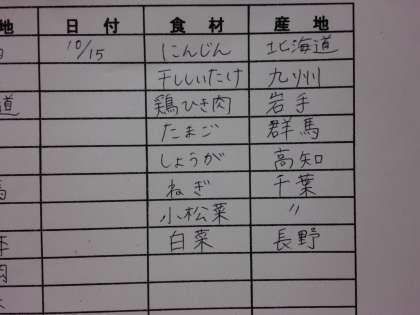 地 日付 食材 産地
10/15 にんじん 北海道
干ししいたけ 九州
道 鶏ひき肉 岩手
たまご 群馬
しょうが 高知
馬 ねぎ 千葉
小松菜 〃
白菜 長野